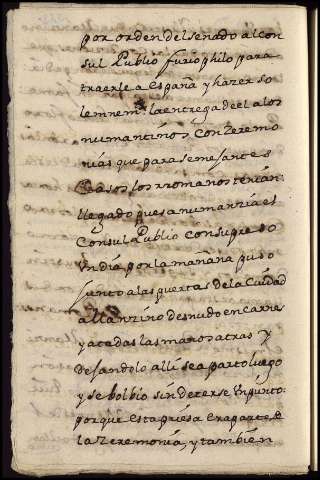 por orden del senado al con
sul Publio furio philo para
traerle a España y hazer so
lemnem.te la entrega de el a los
numantinos con zeremo
nias que para semejantes
Casos los rromanos tenian:
llegado pues a numanzia el
Consul Publio con su preso
Un dia por la mañana puso
junto a las puertas de la Ciudad
a Manzino desnudo en carnes
y atadas las manos atras y
dejandolo alli se aparto luego
y se bolbio sin deterse Un punto
porque esta priesa era parte de
la zeremonia, y tambien